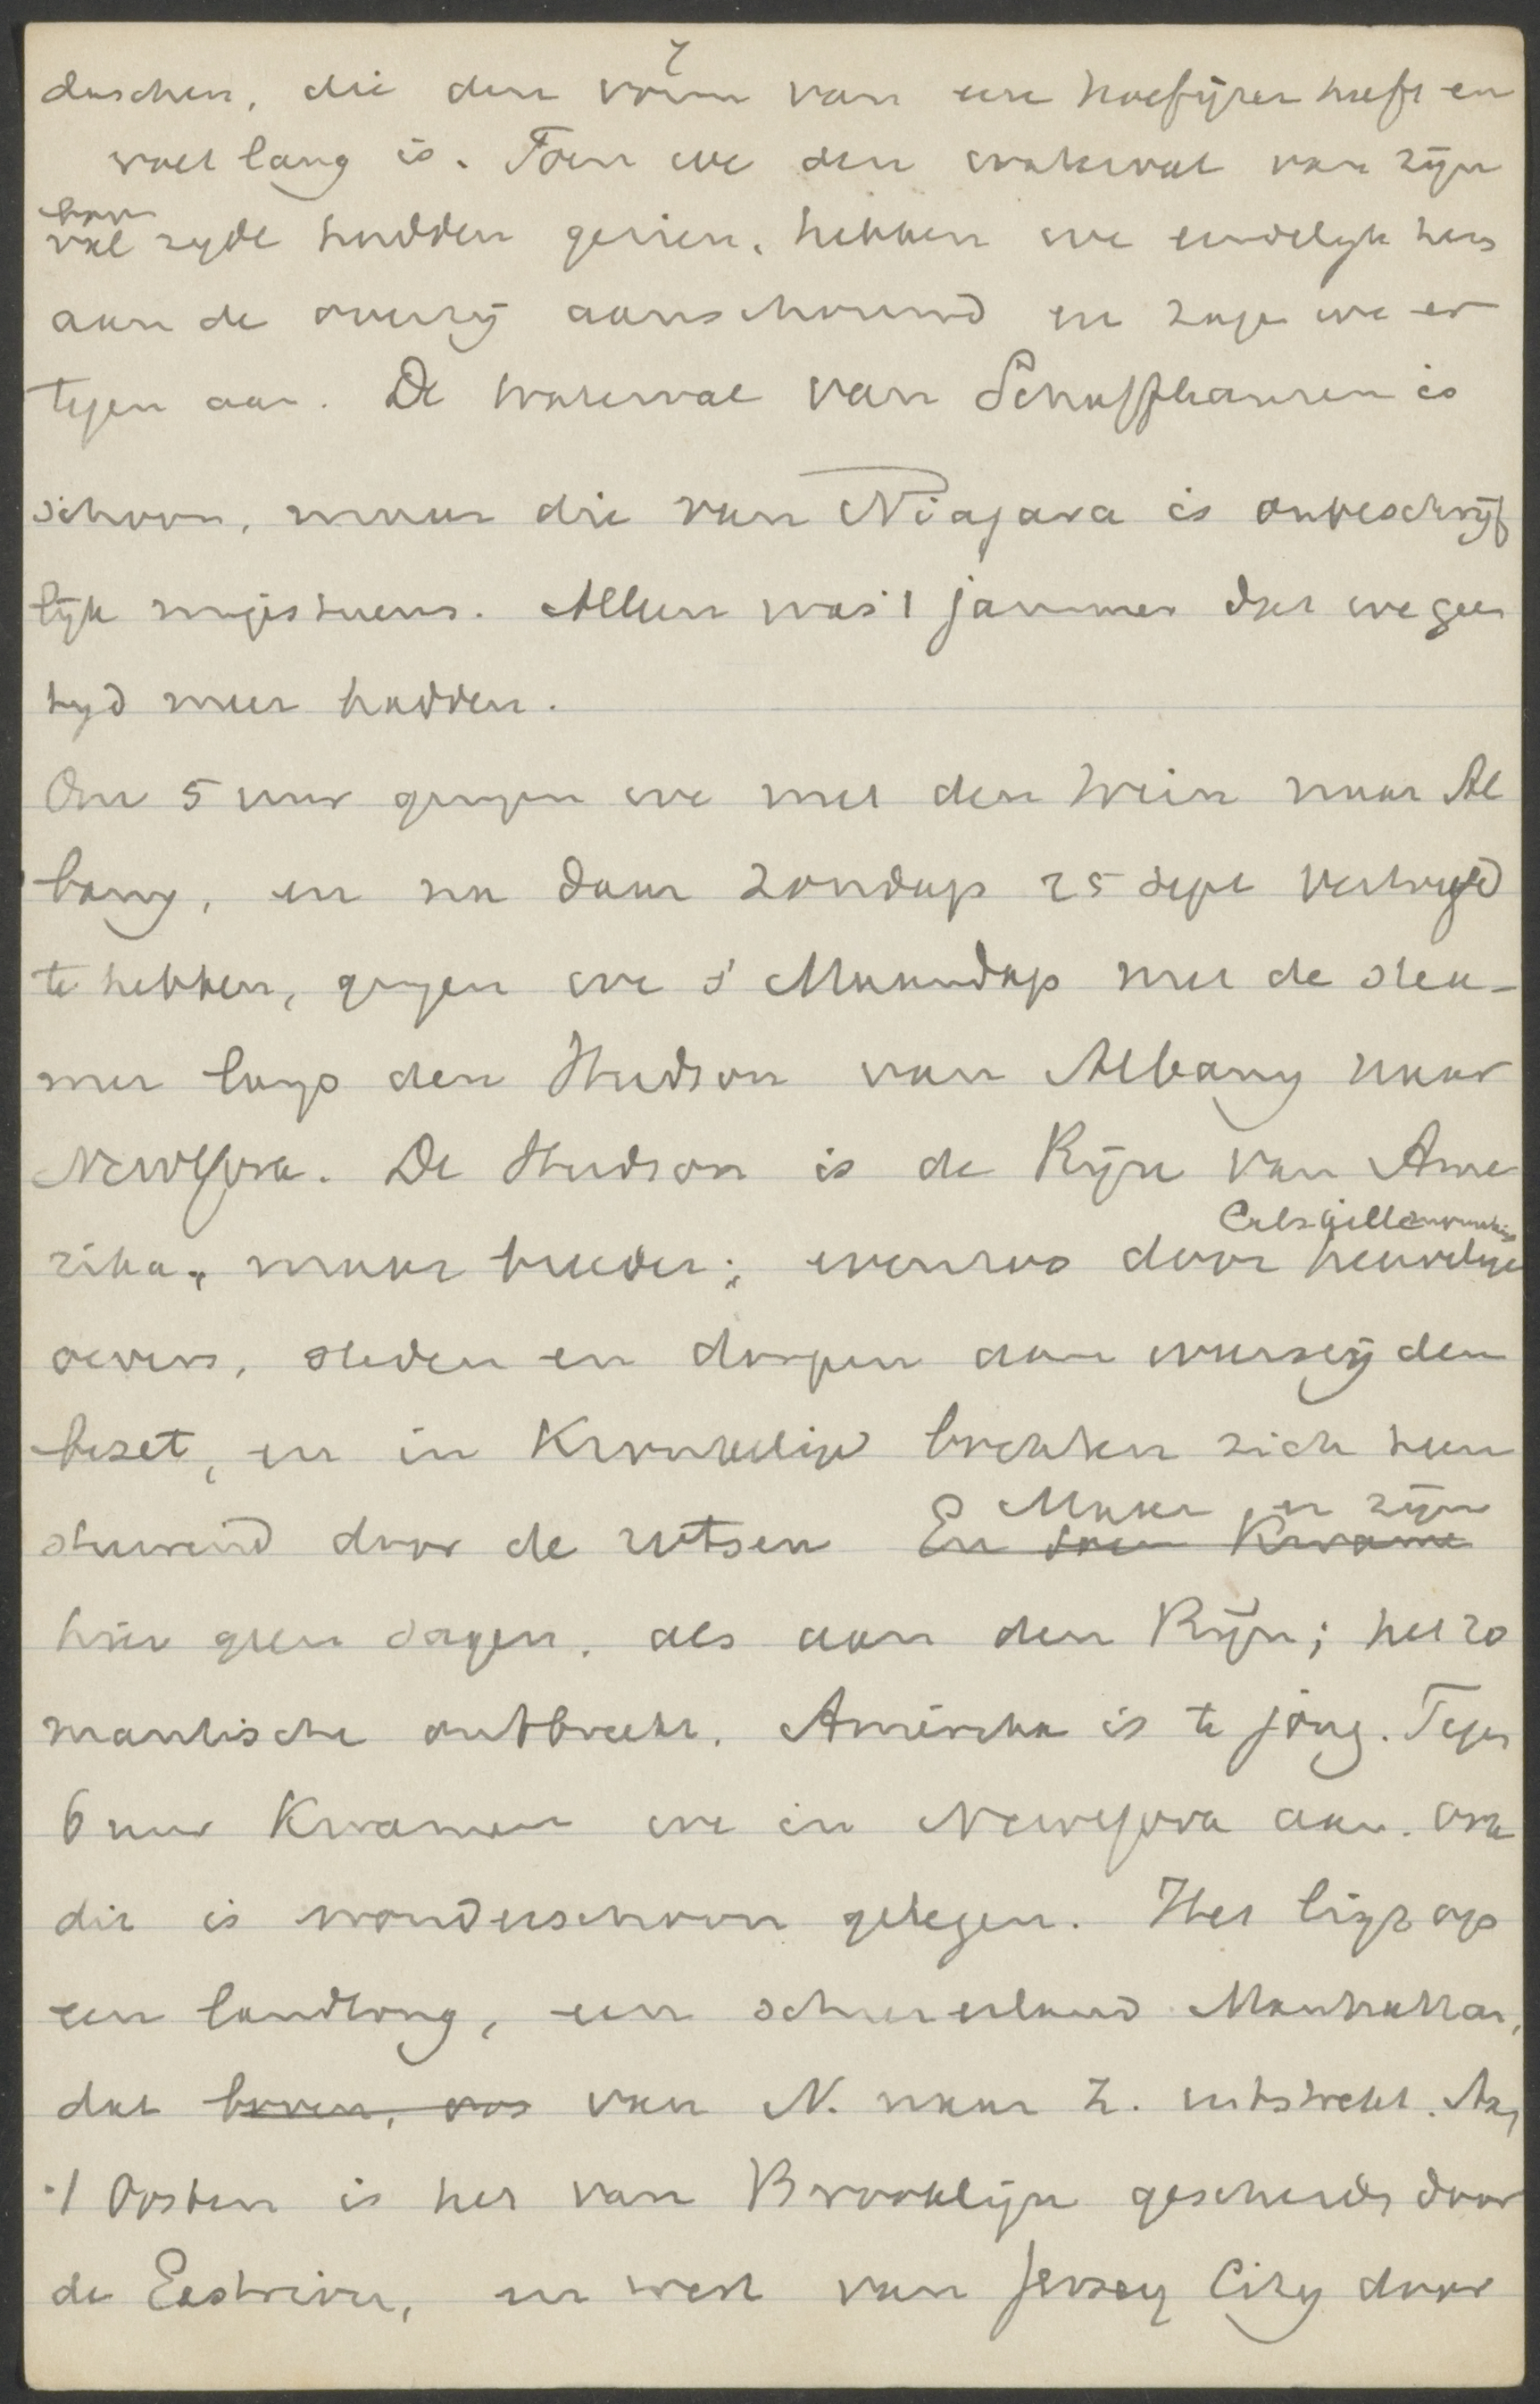 duschen, die den vorm van een hoefijzer heeft en
voet lang is. Toen we den waterval van zijn
boven
val zyde hadden gezien, hebben we eindelijk hem
aan de overzij aanschouwd en zagen we er
tegen aan. De waterval van Schaffhausen is
schoon, maar die van Niagara is onbeschrijf
lijk majestueus. Alleen was 't jammer dat we geen
tyd meer hadden.
Om 5 uur gingen we met den trein naar Al
bany, en na daar Zondag 25 Sept vertoefd
te hebben, gingen we s' Maandags met de stea-
mer langs den Hudson van Albany naar
NewYork. De Hudson is de Rijn van Ame
Catsgille
rika, maar breeder; evenzoo door heuvelige
oevers, steden en dorpen aan weerszijden
bezet, en in kronkelige bochten zich heen
Maar er zijn
sturend door de rotsen En toen kwame
hier geen sagen, als aan den Rijn; het ro
mantische ontbreekt. Amerika is te jong. Tegen
6 uur kwamen we in NewYork aan. Ook
dit is wonderschoon gelegen. Het ligt op
een landtong, een schiereiland Manhattan,
dat boven, van N. naar Z. uitstrekt. Aan
't Oosten is het van Brooklijn gescheiden door
de Eastriver, en west van Jersey City door